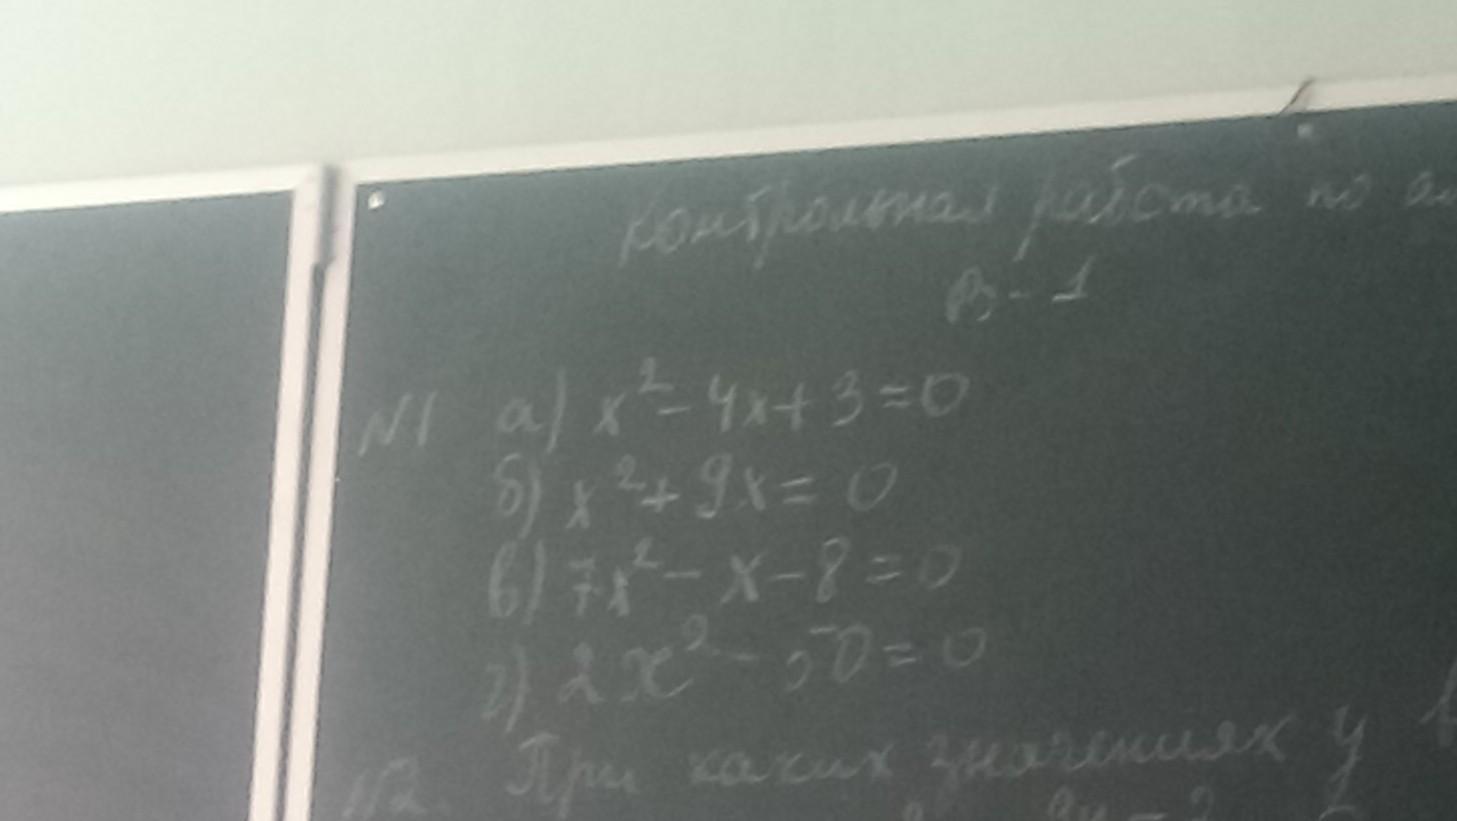 Контрольная работа по
В-1
N1 а) x²-4x+3=0
б) x²+9x=0
в) 7x²-x-8=0
г) 2x²-50=0
N2. При каких значениях у